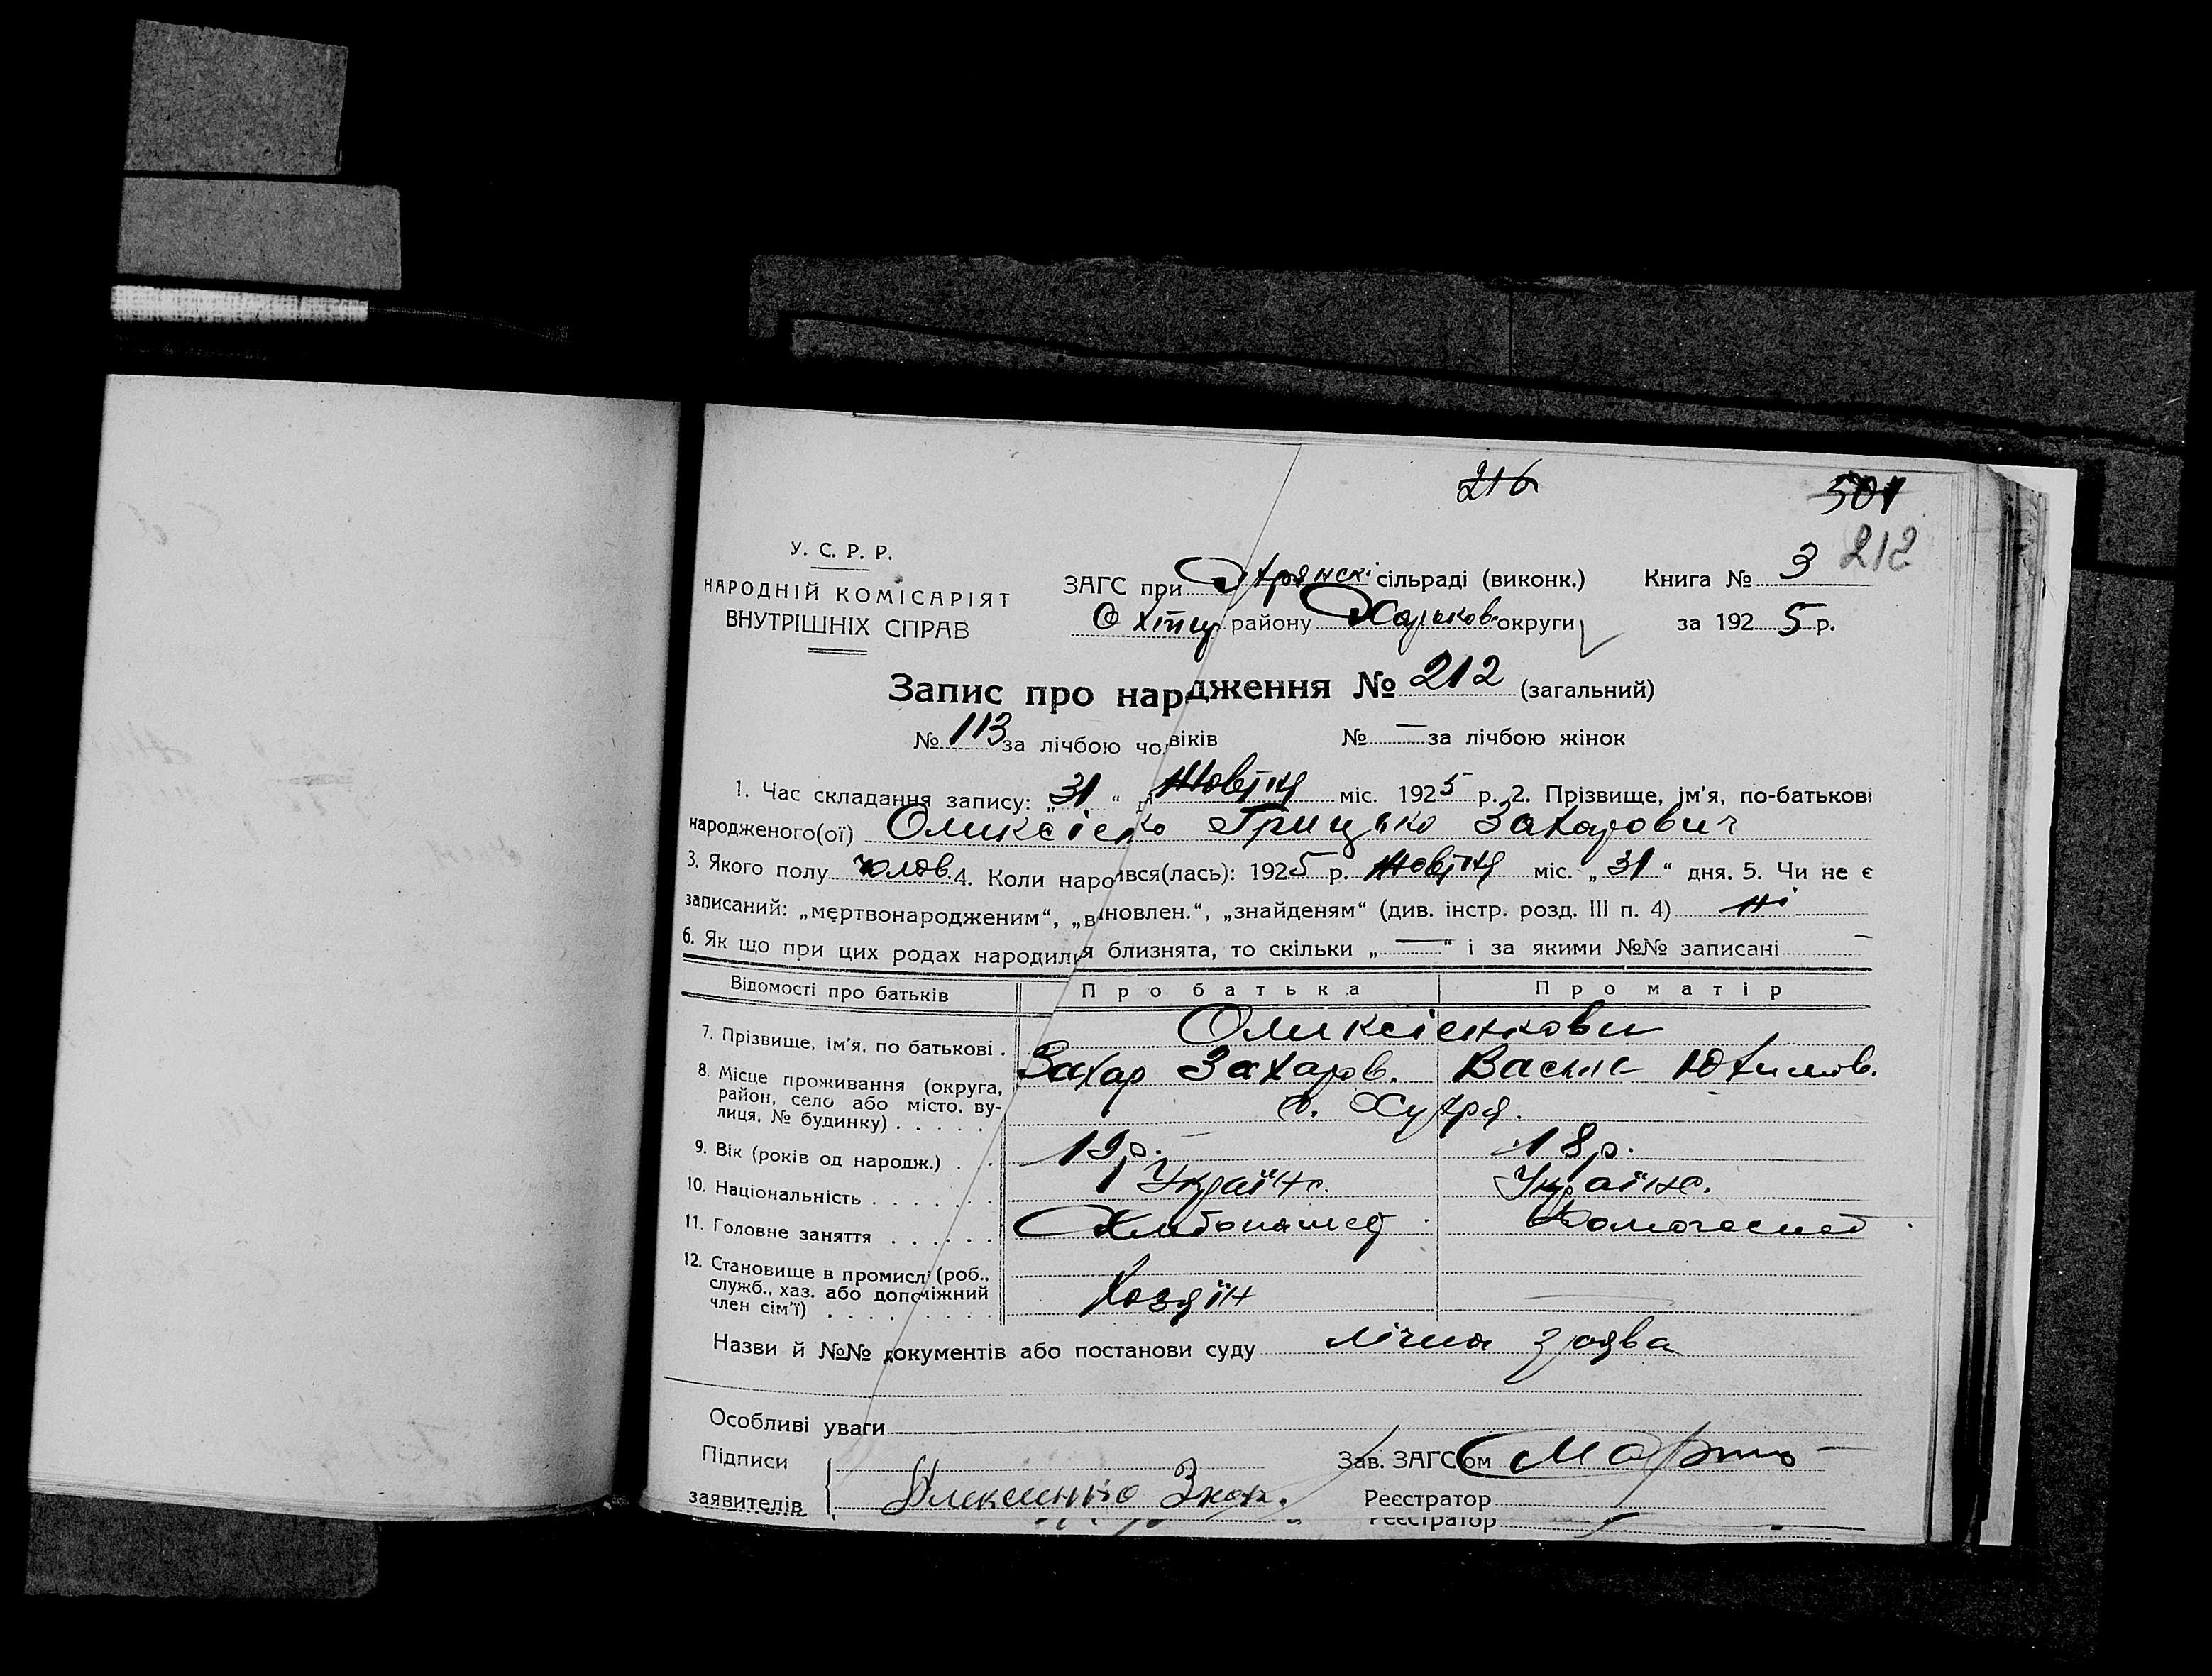 216
501
212
У. С. Р. Р.
НАРОДНІЙ КОМІСАРІЯТ
ВНУТРІШНІХ СПРАВ
ЗАГС при сільраді (виконк.) Книга № 3
Охтир району Харьков. округи за 1925 р.
Запис про народження № 212 (загальний)
№ 113 за лічбою чоловіків № — за лічбою жінок
1. Час складання запису: „31“ дня Жовтня міс. 1925 р. 2. Прізвище, ім'я, по-батькові
народженого(ої) Оликсієнко Грицько Захарович
3. Якого полу чолов. 4. Коли народився(лась): 1925 р. Жовтня міс. „31“ дня. 5. Чи не є
записаний: „мертвонародженим“, „виновлен.“, „знайденям“ (див. інстр. розд. III п. 4) ні
6. Як що при цих родах народился близнята, то скільки „—“ і за якими №№ записані —
Відомості про батьків Про батька Про матір
7. Прізвище, ім'я, по батькові . Оликсієнкови
Захар Захаров. Васил Юхимов.
8. Місце проживання (округа,
район, село або місто, вулиця, № будинку) . . . . . с. Хутря.
9. Вік (років од народж.) . . . 19 р. 18 р.
10. Національність . . . . . . . Україн. Україн.
11. Головне заняття . . . . . . Хлібопашец
12. Становище в промислі (роб.,
служб., хаз. або допоміжний
член сім'ї) . . . . . . . . . Хозяїн —
Назви й №№ документів або постанови суду лічна заява
Особливі уваги
Підписи Зав. ЗАГСом
заявителів Алексиенко Захар. Реєстратор
Реєстратор